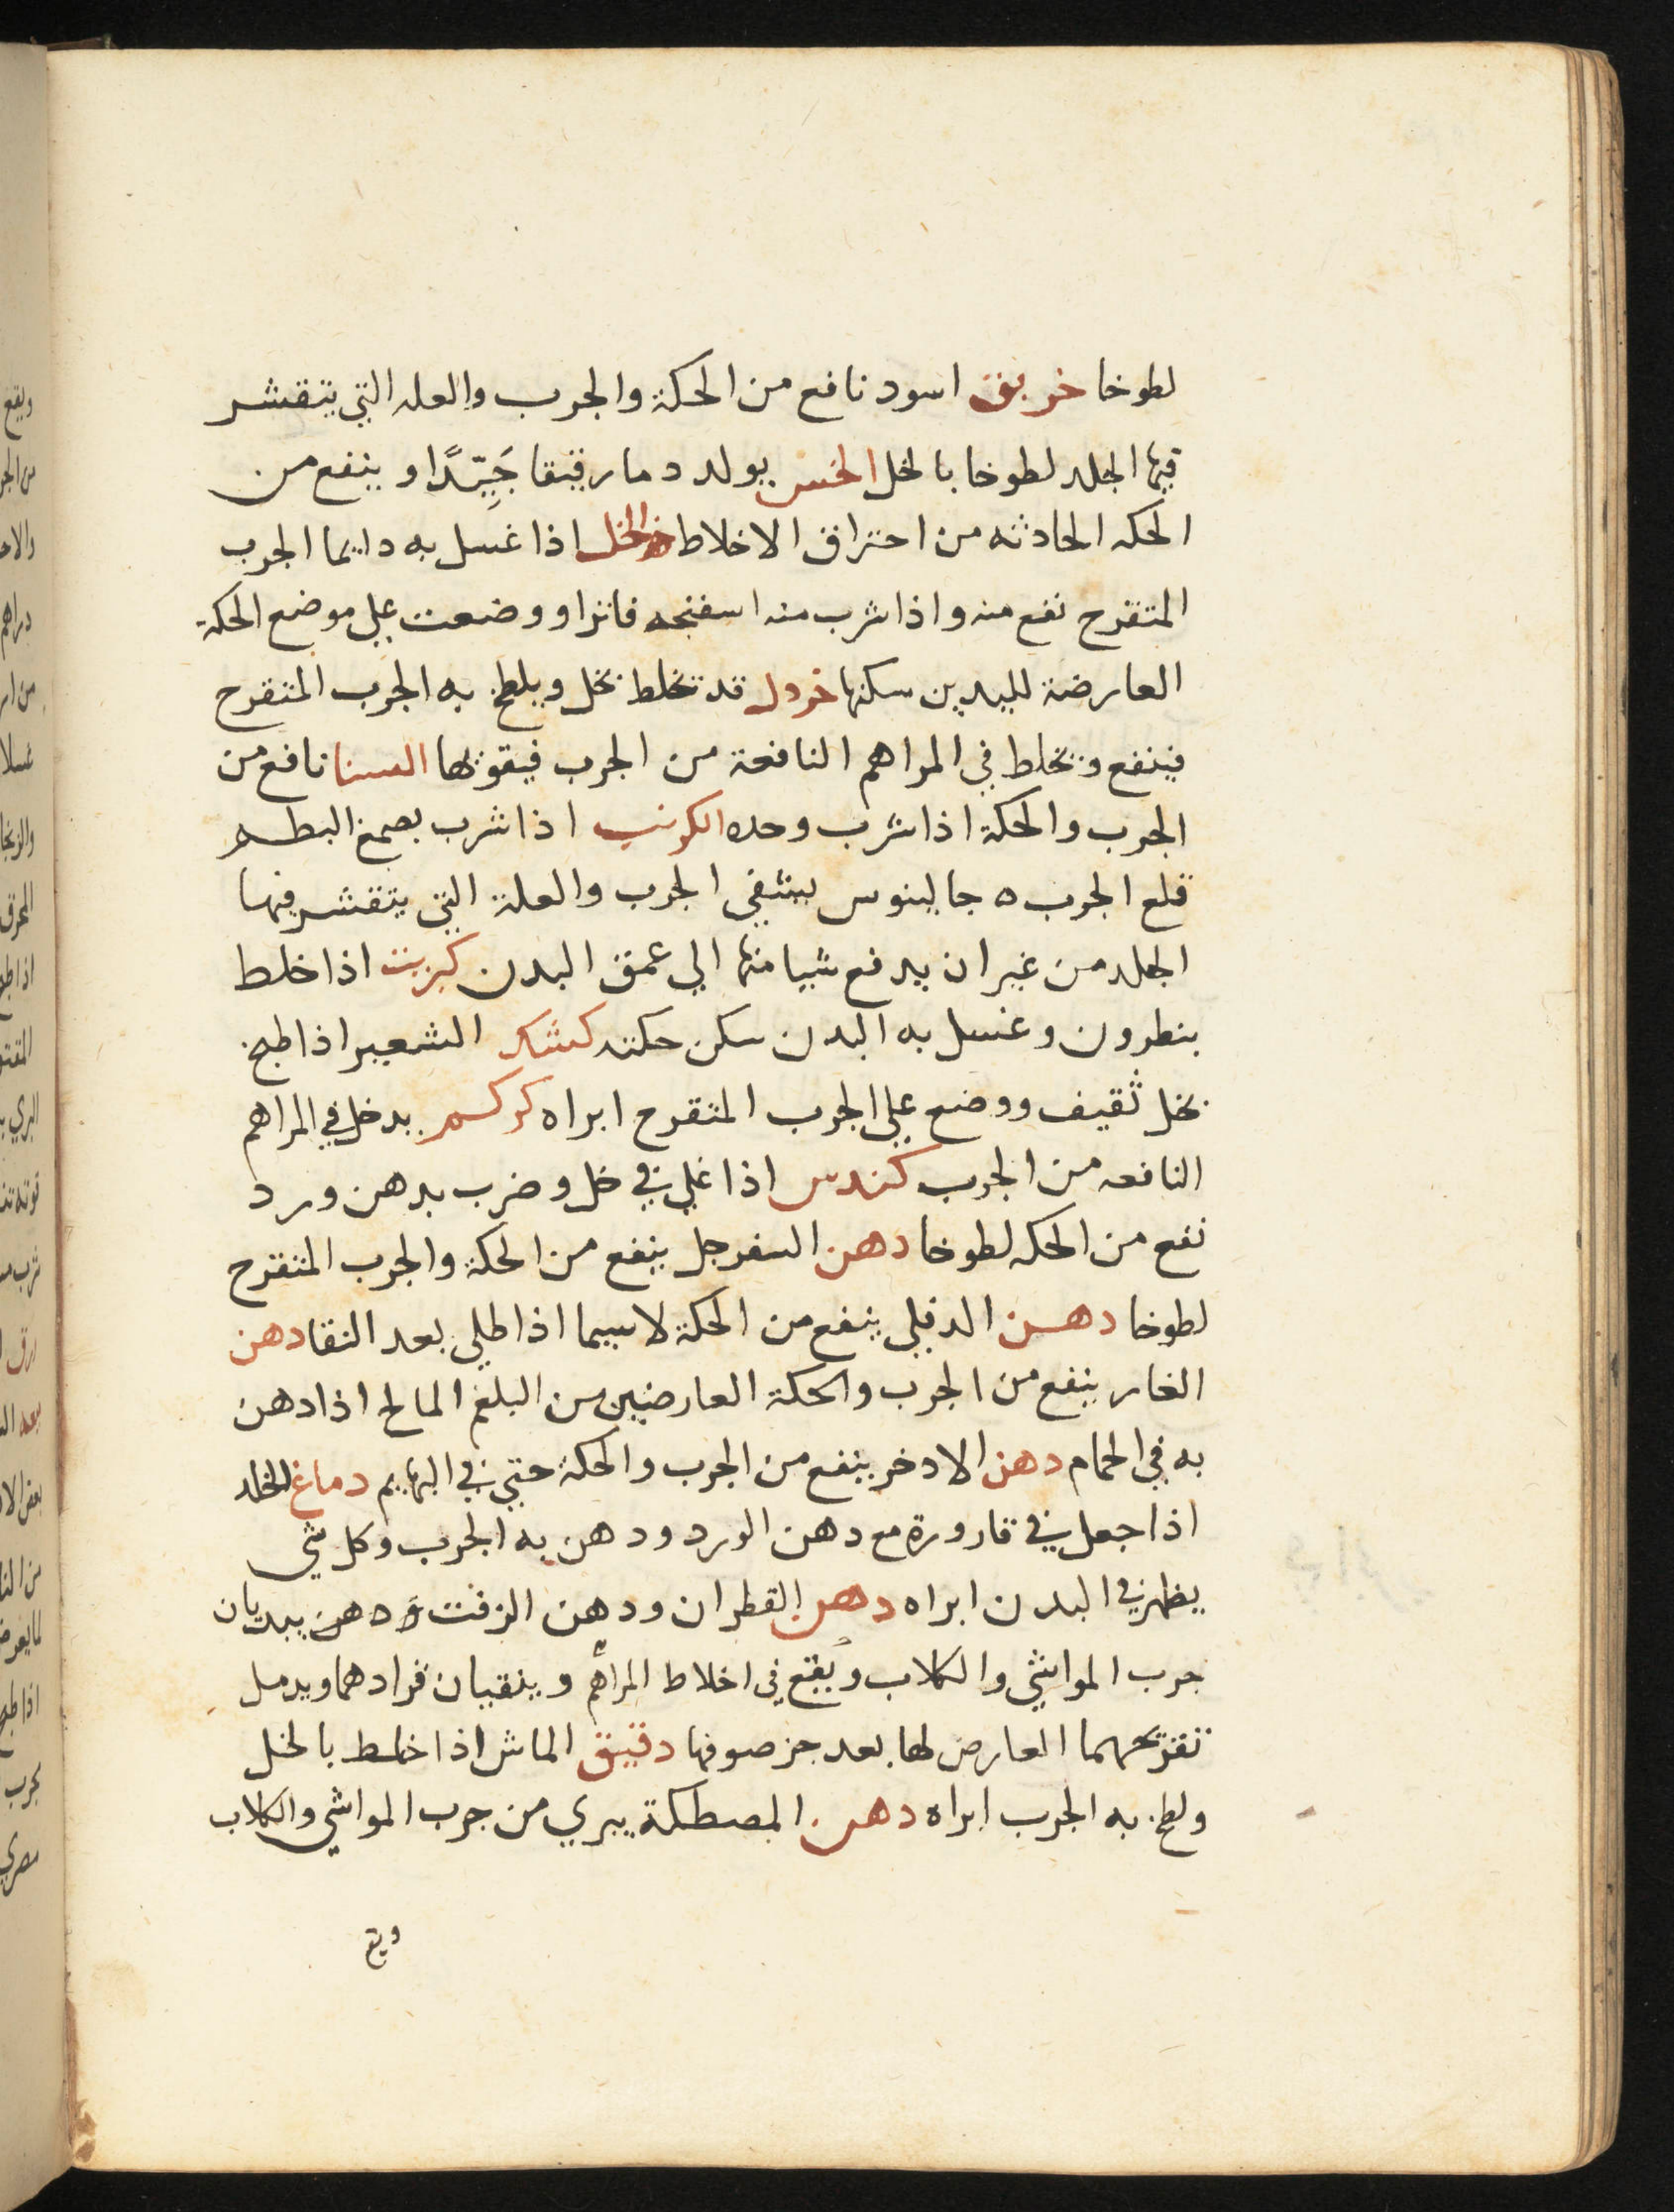 لطوخا خربق اسود نافع من الحكة والجرب والعله التي يتقشر
فيها الجلد لطوخا بالخل الخس يولد دما رقيقا جَيِّدًا وينفع من
الحكه الحادثه من احتراق الاخلاط الخل اذا غسل به دايما الجرب
المتقرح نفع منه واذا شرب منه اسفنجه فاترا ووضعت علي موضع الحكة
العارضة لليدين سكنها خردل قد تخلط بخل ويلطخ به الجرب المتقرح
فينفع وتخلط في المراهم النافعة من الجرب فيقويها السنا نافع من
الجرب والحكة اذا شرب وحده الكرنب اذا شرب بصمغ البطم
قلع الجرب ه جالينوس يشفي الجرب والعلة التي يتقشر فيها
الجلد من غير ان يدفع شيا منها الي عمق البدن كبريت اذا خلط
بنطرون وغسل به البدن سكن حكته كشك الشعير اذا طبخ
بخل ثقيف ووضع علي الجرب المتقرح ابراه كركم يدخل في المراهم
النافعه من الجرب كندس اذا غلي في خل وضرب بدهن ورد
نفع من الحكه لطوخا دهن السفرجل ينفع من الحكة والجرب المتقرح
لطوخا دهن الدفلي ينفع من الحكة لاسيما اذا طلي بعد النقا دهن
الغار ينفع من الجرب والحكة العارضين من البلغم المالح اذا دهن
به في الحمام دهن الادخر ينفع من الجرب والحكة حتي في البهايم دماغ الخلد
اذا جعل في قارورة مع دهن الورد ودهن به الجرب وكل شي
يظهر في البدن ابراه دهن القطران ودهن الزفت وَدهن يبريان
جرب المواشي والكلاب ويقع في اخلاط المراهم وينقيان قرادهما ويدمل
تقرحهما العارض لها بعد جز صوفها دقيق الماش اذا خلط بالخل
ولطخ به الجرب ابراه دهن المصطكة يبري من جرب المواشي والكلاب
ويقع